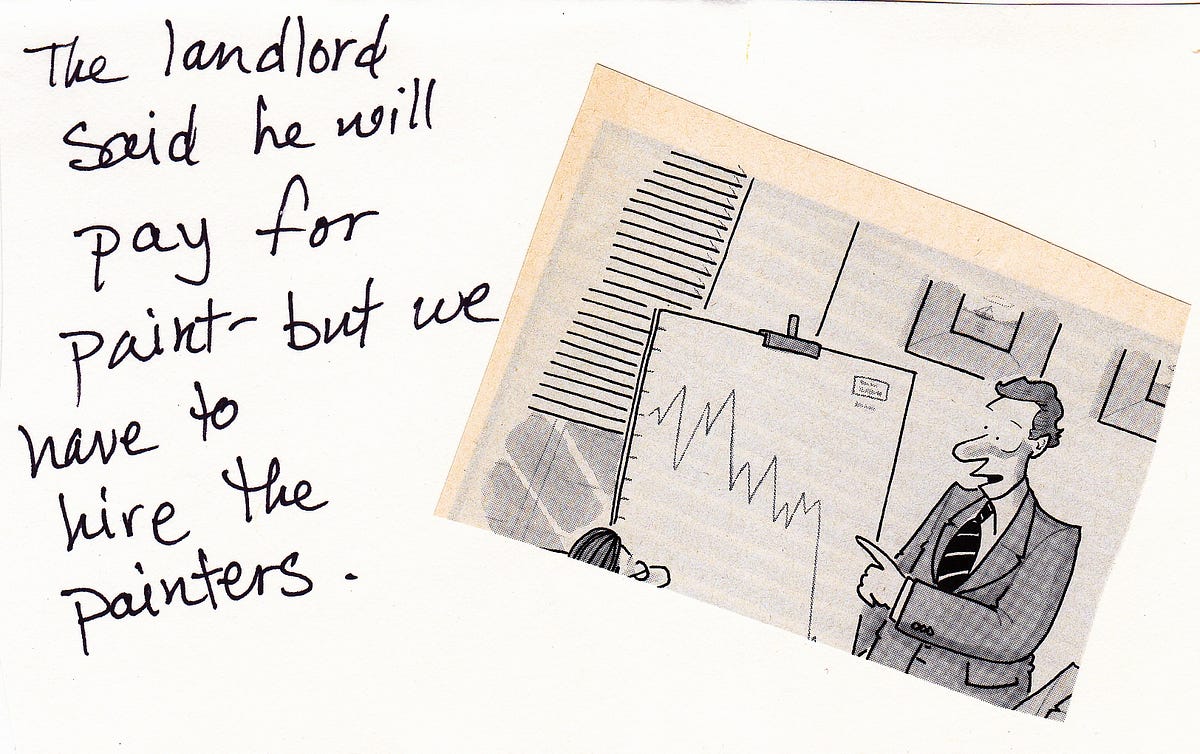 The landlord
said he will
pay for
paint- but we
have to
hire the
painters.